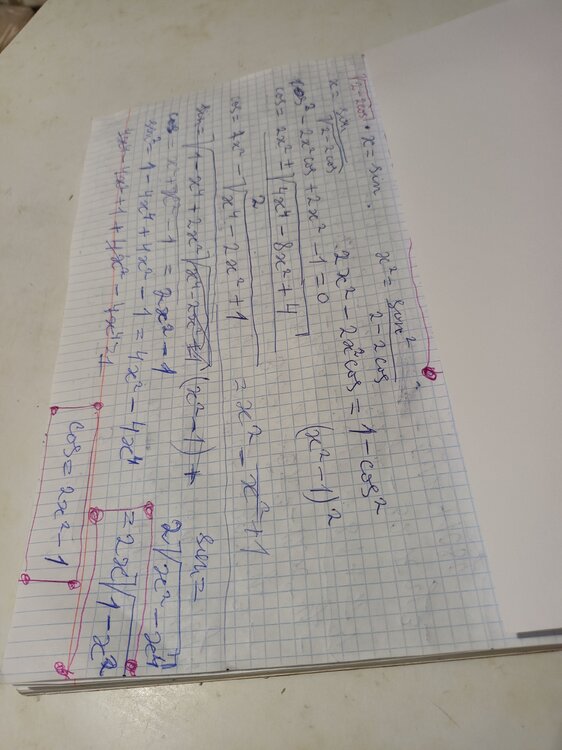 √2-2cos · x = sin.
x = sin / √2-2cos
x² = sin² / 2-2cos
2x² - 2x²cos = 1 - cos²
cos² - 2x²cos + 2x² - 1 = 0
cos = 2x² + √4x⁴ - 8x² + 4 / 2
(x² - 1)²
cos = x² - √x⁴ - 2x² + 1 = x² - x² + 1
sin = √1 - x⁴ + 2x² √x⁴ - 2x² + 1 (x² - 1) +
cos = x² + x² - 1 = 2x² - 1
sin² = 1 - 4x⁴ + 4x² - 1 = 4x² - 4x⁴
sin =
2√x² - x⁴
= 2x√1 - x²
cos = 2x² - 1